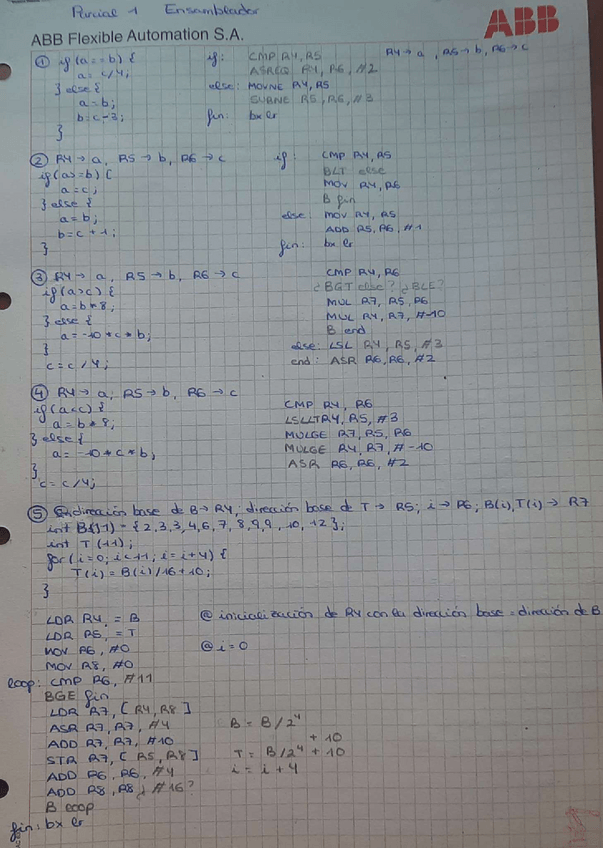 Parcial 1 Ensamblador
ABB
ABB Flexible Automation S.A.
① if(a==b) { if: CMP R4,R5 R4→a, R5→b, R6→c
a= c/4; ASREQ R4, R6, #2
} else { else: MOVNE R4,R5
a=b; SUBNE R5,R6,#3
b=c-3; fin: bx lr
}
② R4→a, R5→b, R6→c if: CMP R4,R5
if(a>=b) { BLT else
a=c; MOV R4,R6
} else { B fin
a=b; else: MOV R4,R5
b=c+1; ADD R5,R6,#1
} fin: bx lr
③ R4→a, R5→b, R6→c CMP R4,R6
if(a>c) { ¿BGT else? ¿BLE?
a=b*8; MUL R7,R5,R6
} else { MUL R4,R7,#-10
a=-10*c*b; B end
} else: LSL R4,R5,#3
c=c/4; end: ASR R6,R6,#2
④ R4→a, R5→b, R6→c
if(a<c) { CMP R4,R6
a=b*8; LSLLTR4,R5,#3
} else { MULGE R7,R5,R6
a=-10*c*b; MULGE R4,R7,#-10
} ASR R6,R6,#2
c=c/4;
⑤ dirección base de B→R4, dirección base de T→R5; i→R6; B(i),T(i)→R7
int B(11) = {2,3,3,4,6,7,8,9,9,10,12};
int T(11);
for(i=0; i<11; i=i+4) {
T(i)=B(i)/16+10;
}
LDR R4, =B @ inicialización de R4 con la dirección base = dirección de B
LDR R5, =T
MOV R6, #0 @ i=0
MOV R8, #0
loop: CMP R6, #11
BGE fin
LDR R7, [R4,R8]
ASR R7,R7,#4 B = B/2⁴
ADD R7,R7,#10 + 10
STR R7, [R5,R8] T= B/2⁴ + 10
ADD R6,R6,#4 i= i+4
ADD R8,R8 ¿#16?
B loop
fin: bx lr